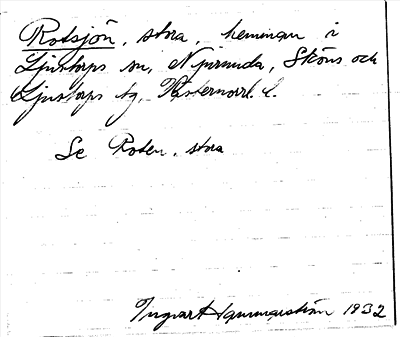 Rotsjön, stora, hemingan i
Ljustorps sn, Njurunda, Sköns och
Ljustorps tg, Västernorrl. l.
Se Roten, stora
Ingvart Hammarström 1932